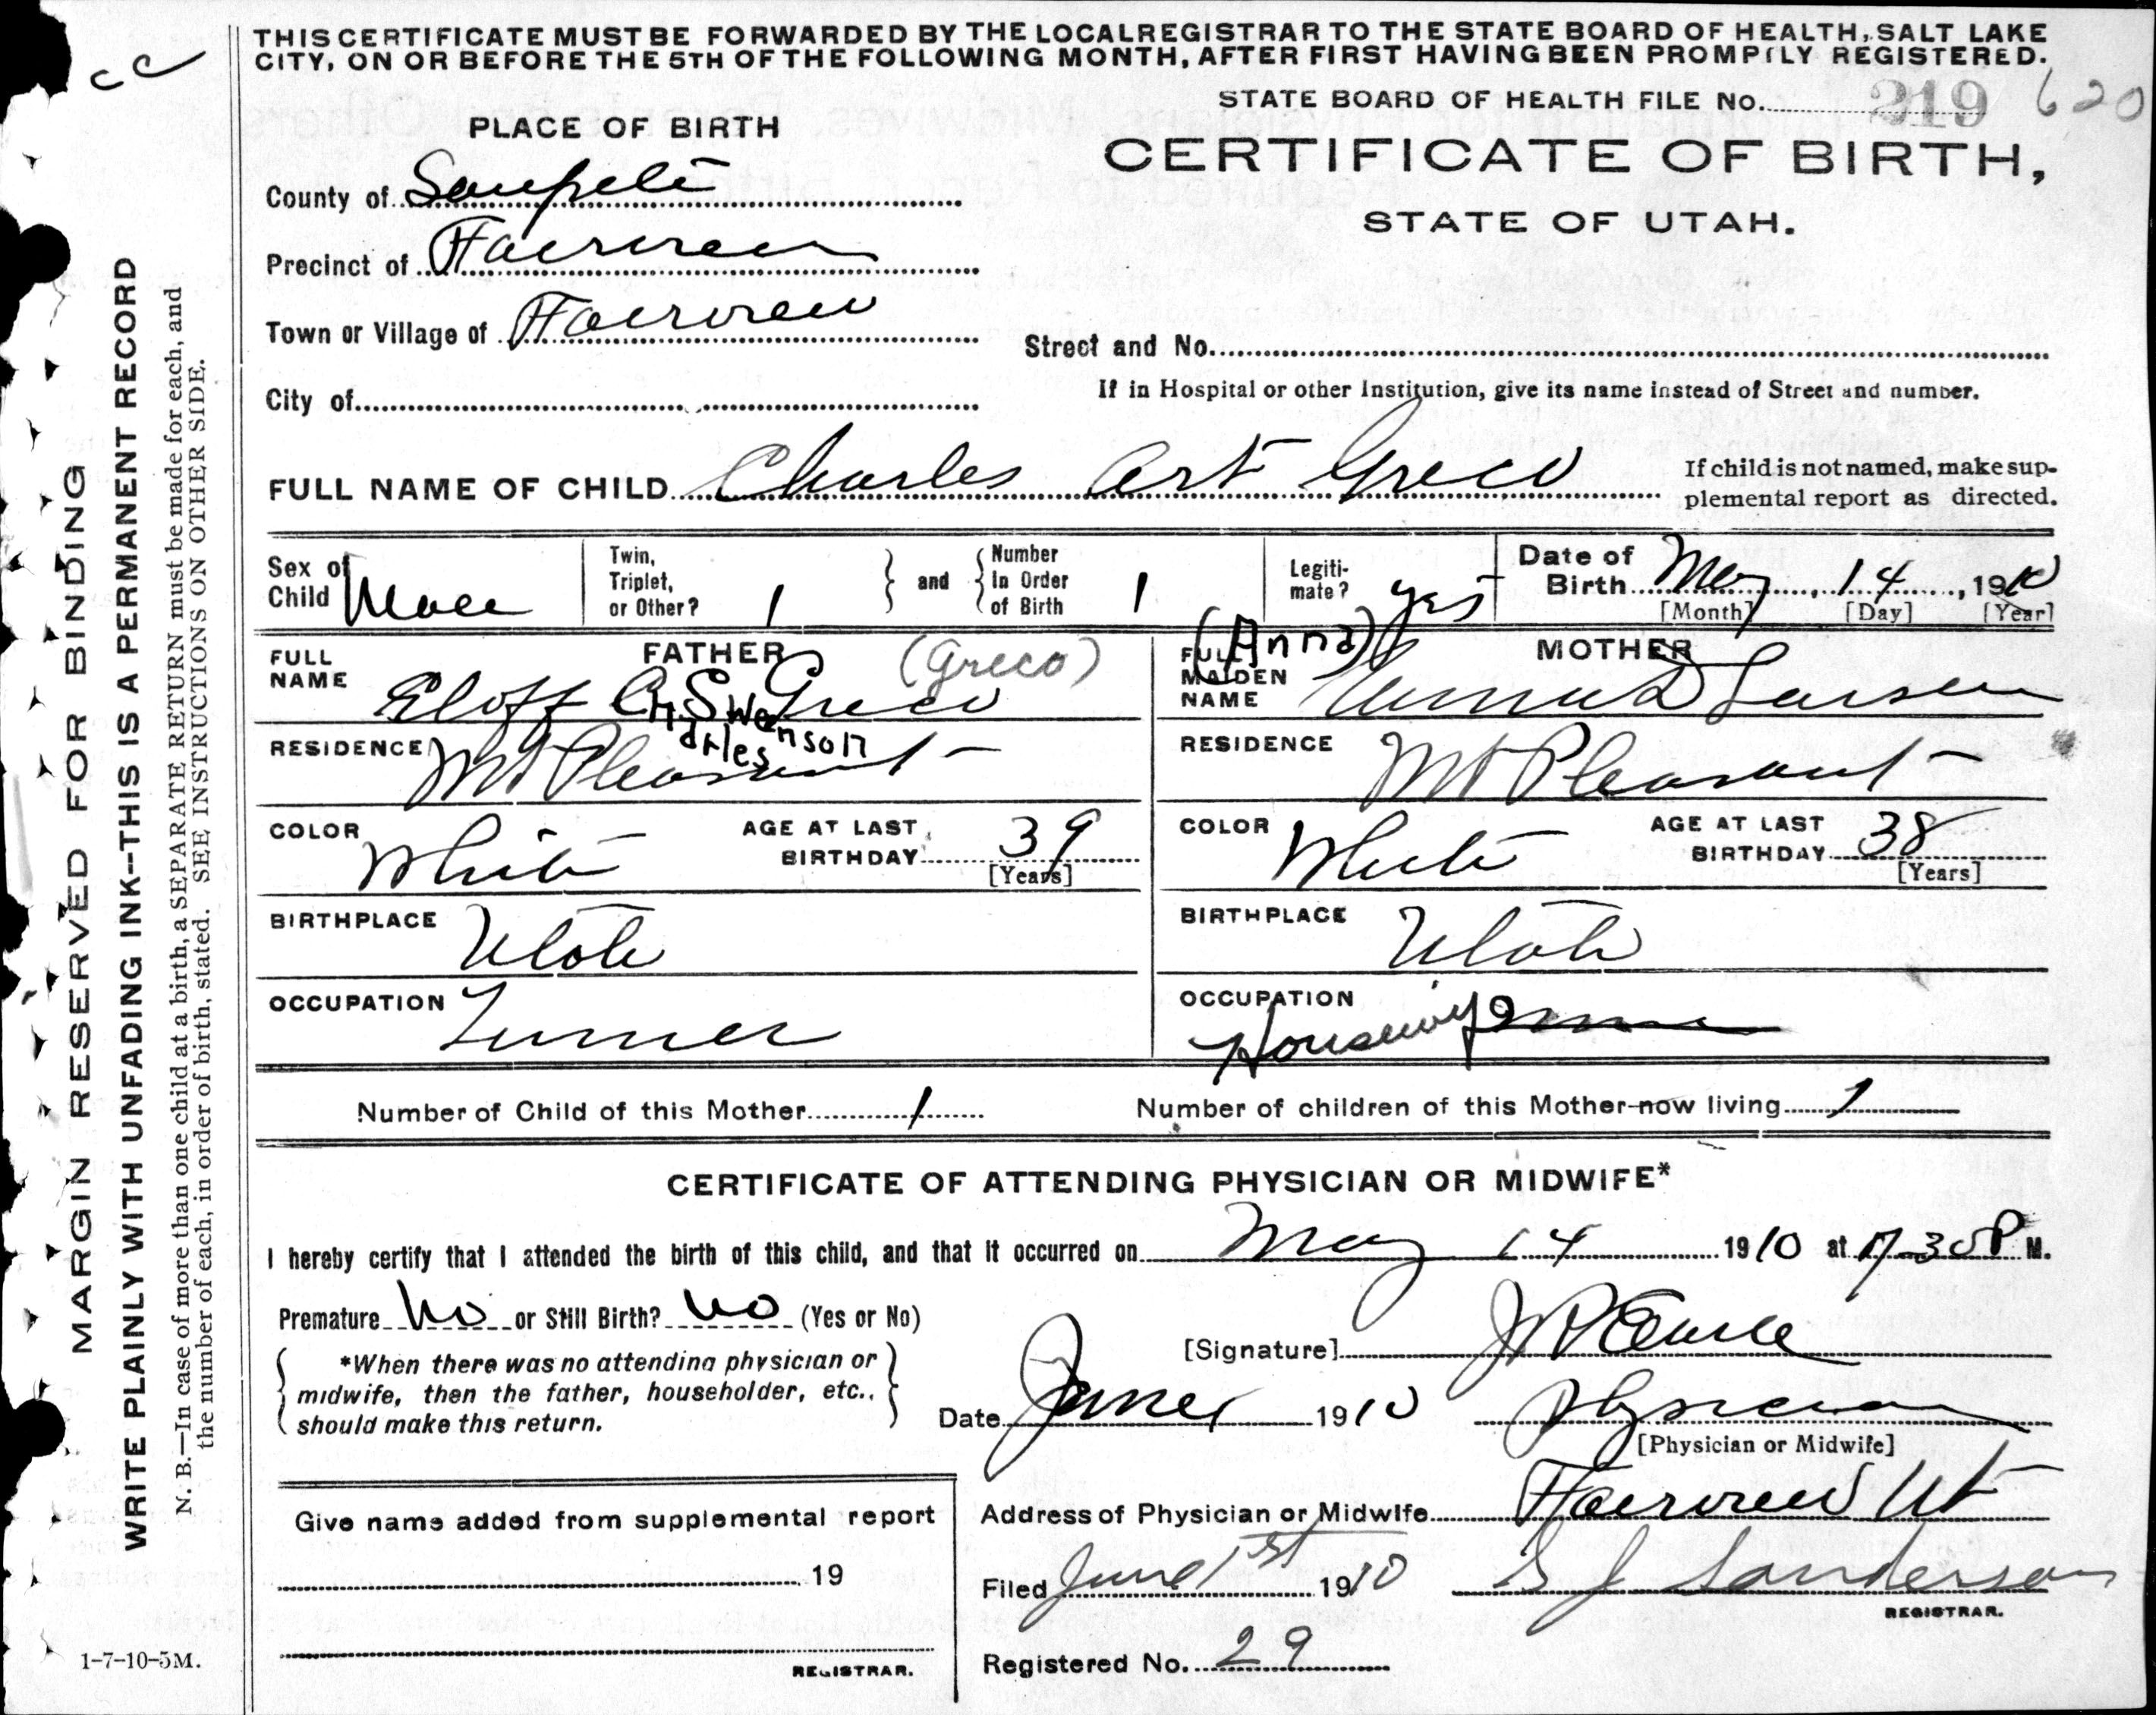 THIS CERTIFICATE MUST BE FORWARDED BY THE LOCAL REGISTRAR TO THE STATE BOARD OF HEALTH, SALT LAKE
CITY, ON OR BEFORE THE 5TH OF THE FOLLOWING MONTH, AFTER FIRST HAVING BEEN PROMPTLY REGISTERED.
cc
STATE BOARD OF HEALTH FILE No. 219 620
PLACE OF BIRTH
CERTIFICATE OF BIRTH,
STATE OF UTAH.
County of Sanpete
Precinct of Fairview
Town or Village of Fairview
Street and No.
City of
If in Hospital or other Institution, give its name instead of Street and number.
FULL NAME OF CHILD Charles Art Greco
If child is not named, make sup-
plemental report as directed.
Sex of Child Male
Twin, Triplet, or Other? 1 and Number In Order of Birth 1
Legiti-mate? yes
Date of Birth May 14, 1910
[Month] [Day] [Year]
FATHER
FULL NAME Eloff C. Greco (Greco)
Charles Swenson
MOTHER
FULL MAIDEN NAME (Anna) D Larsen
RESIDENCE Mt Pleasant
RESIDENCE Mt Pleasant
COLOR White AGE AT LAST BIRTHDAY 39 [Years]
COLOR White AGE AT LAST BIRTHDAY 38 [Years]
BIRTHPLACE Utah
BIRTHPLACE Utah
OCCUPATION
OCCUPATION Housewife
Number of Child of this Mother 1
Number of children of this Mother now living 1
CERTIFICATE OF ATTENDING PHYSICIAN OR MIDWIFE*
I hereby certify that I attended the birth of this child, and that it occurred on May 14 1910 at 7-30 P M.
Premature No or Still Birth? No (Yes or No)
*When there was no attending physician or
midwife, then the father, householder, etc.,
should make this return.
[Signature]
Date June 1 1910 Physician
[Physician or Midwife]
Address of Physician or Midwife Fairview Ut
Give name added from supplemental report
19
REGISTRAR.
Filed June 1st 1910 S J Sanderson
REGISTRAR.
Registered No. 29
MARGIN RESERVED FOR BINDING
WRITE PLAINLY WITH UNFADING INK--THIS IS A PERMANENT RECORD
N. B.—In case of more than one child at a birth, a SEPARATE RETURN must be made for each, and
the number of each, in order of birth, stated. SEE INSTRUCTIONS ON OTHER SIDE.
1-7-10-5M.